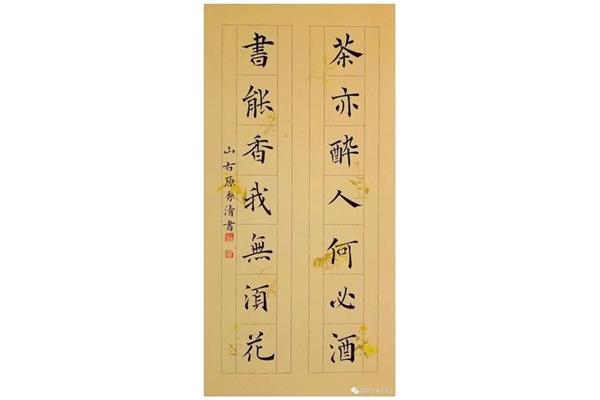 茶亦醉人何必酒
書能香我無須花
山右原秀清書